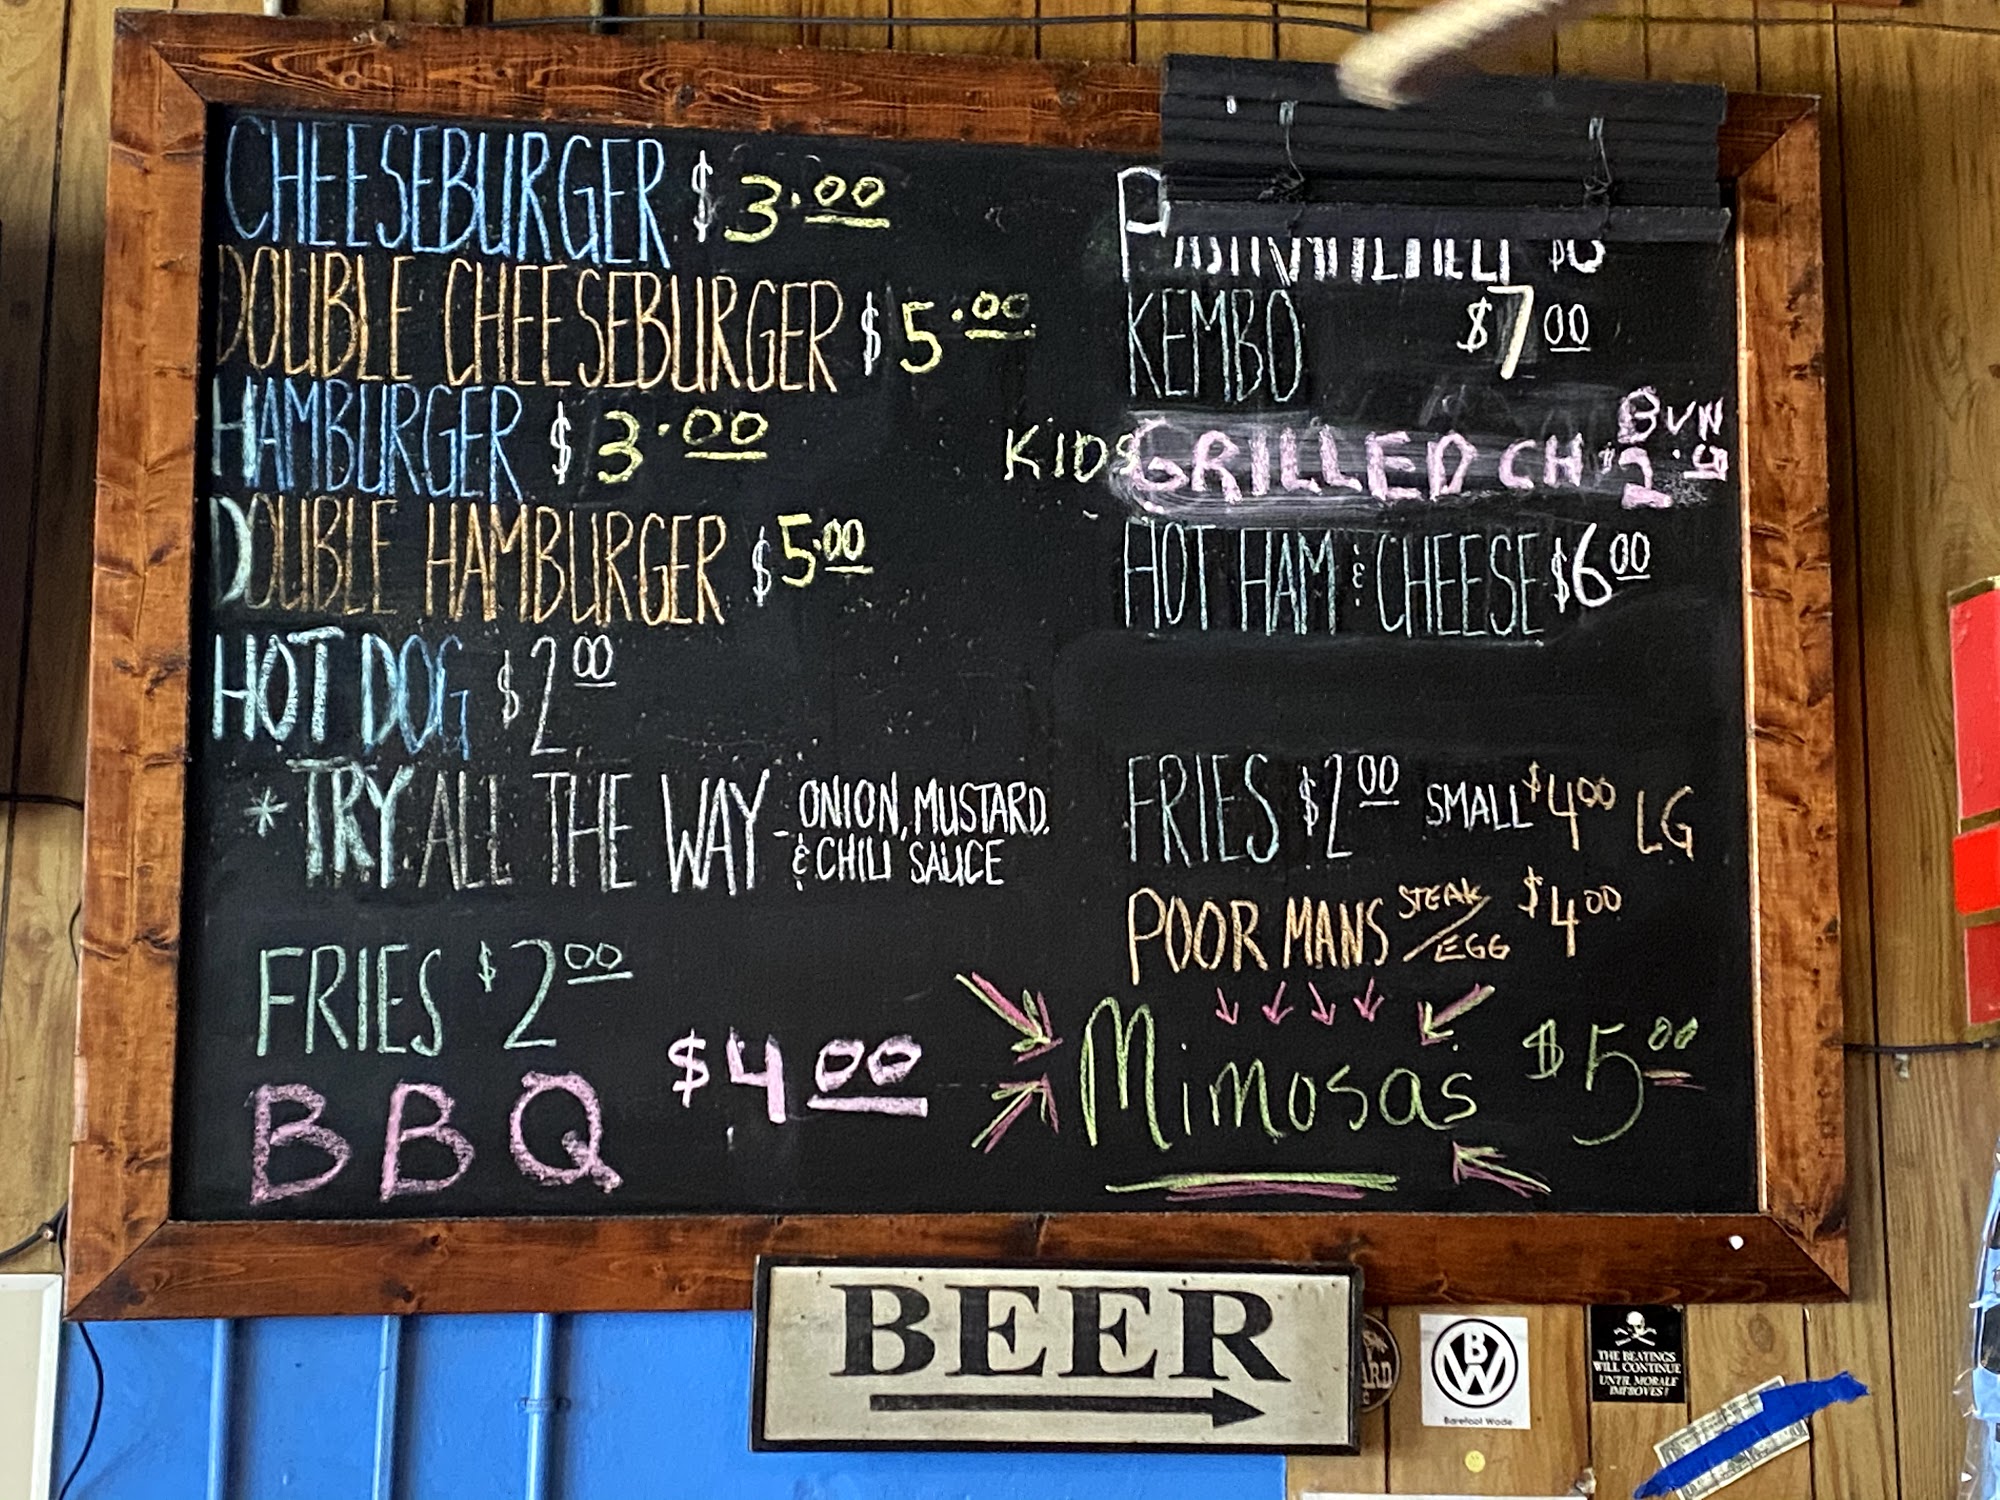 CHEESEBURGER $3.00
DOUBLE CHEESEBURGER $5.00
HAMBURGER $3.00
DOUBLE HAMBURGER $5.00
HOT DOG $2.00
*TRY ALL THE WAY - ONION, MUSTARD,
& CHILI SAUCE
FRIES $2.00
BBQ $4.00
KEMBO $7.00
BUN
KIDS GRILLED CH $2.00
HOT HAM & CHEESE $6.00
FRIES $2.00 SMALL $4.00 LG
POOR MANS STEAK/EGG $4.00
Mimosas $5.00
BEER
BW
Barefoot Wade
THE BEATINGS
WILL CONTINUE
UNTIL MORALE
IMPROVES!